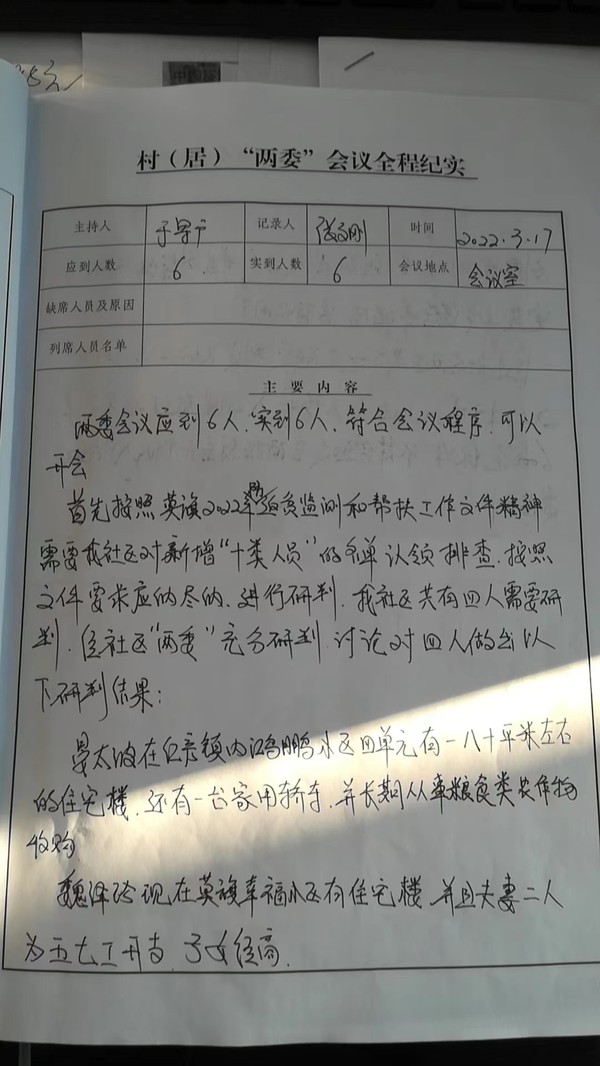 村（居）“两委”会议全程纪实
主持人 记录人 时间 2022.3.17
应到人数 6 实到人数 6 会议地点 会议室
缺席人员及原因
列席人员名单
主要内容
两委会议应到6人、实到6人、符合会议程序、可以
开会
首先按照莫旗2022年返贫监测和帮扶工作文件精神
需要我社区对新增“十类人员”的名单认领排查、按照
文件要求应纳尽纳、进行研判、我社区共有四人需要研
判、社区“两委”充分研判、讨论对四人做出以
下研判结果：
太波在镇内鸿鹏小区四单元有一八十平米左右
的住宅楼、还有一台家用轿车、并长期从事粮食类农作物
收购
魏泽玲现在莫旗幸福小区有住宅楼、并且夫妻二人
为五七工开支、子女